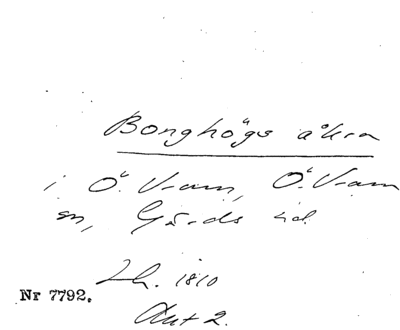 Bonghögs åkra
i Ö. Vram, Ö. Vram
sn, Gärds hd.
Lh. 1810
Nr 7792.
Akt 2.